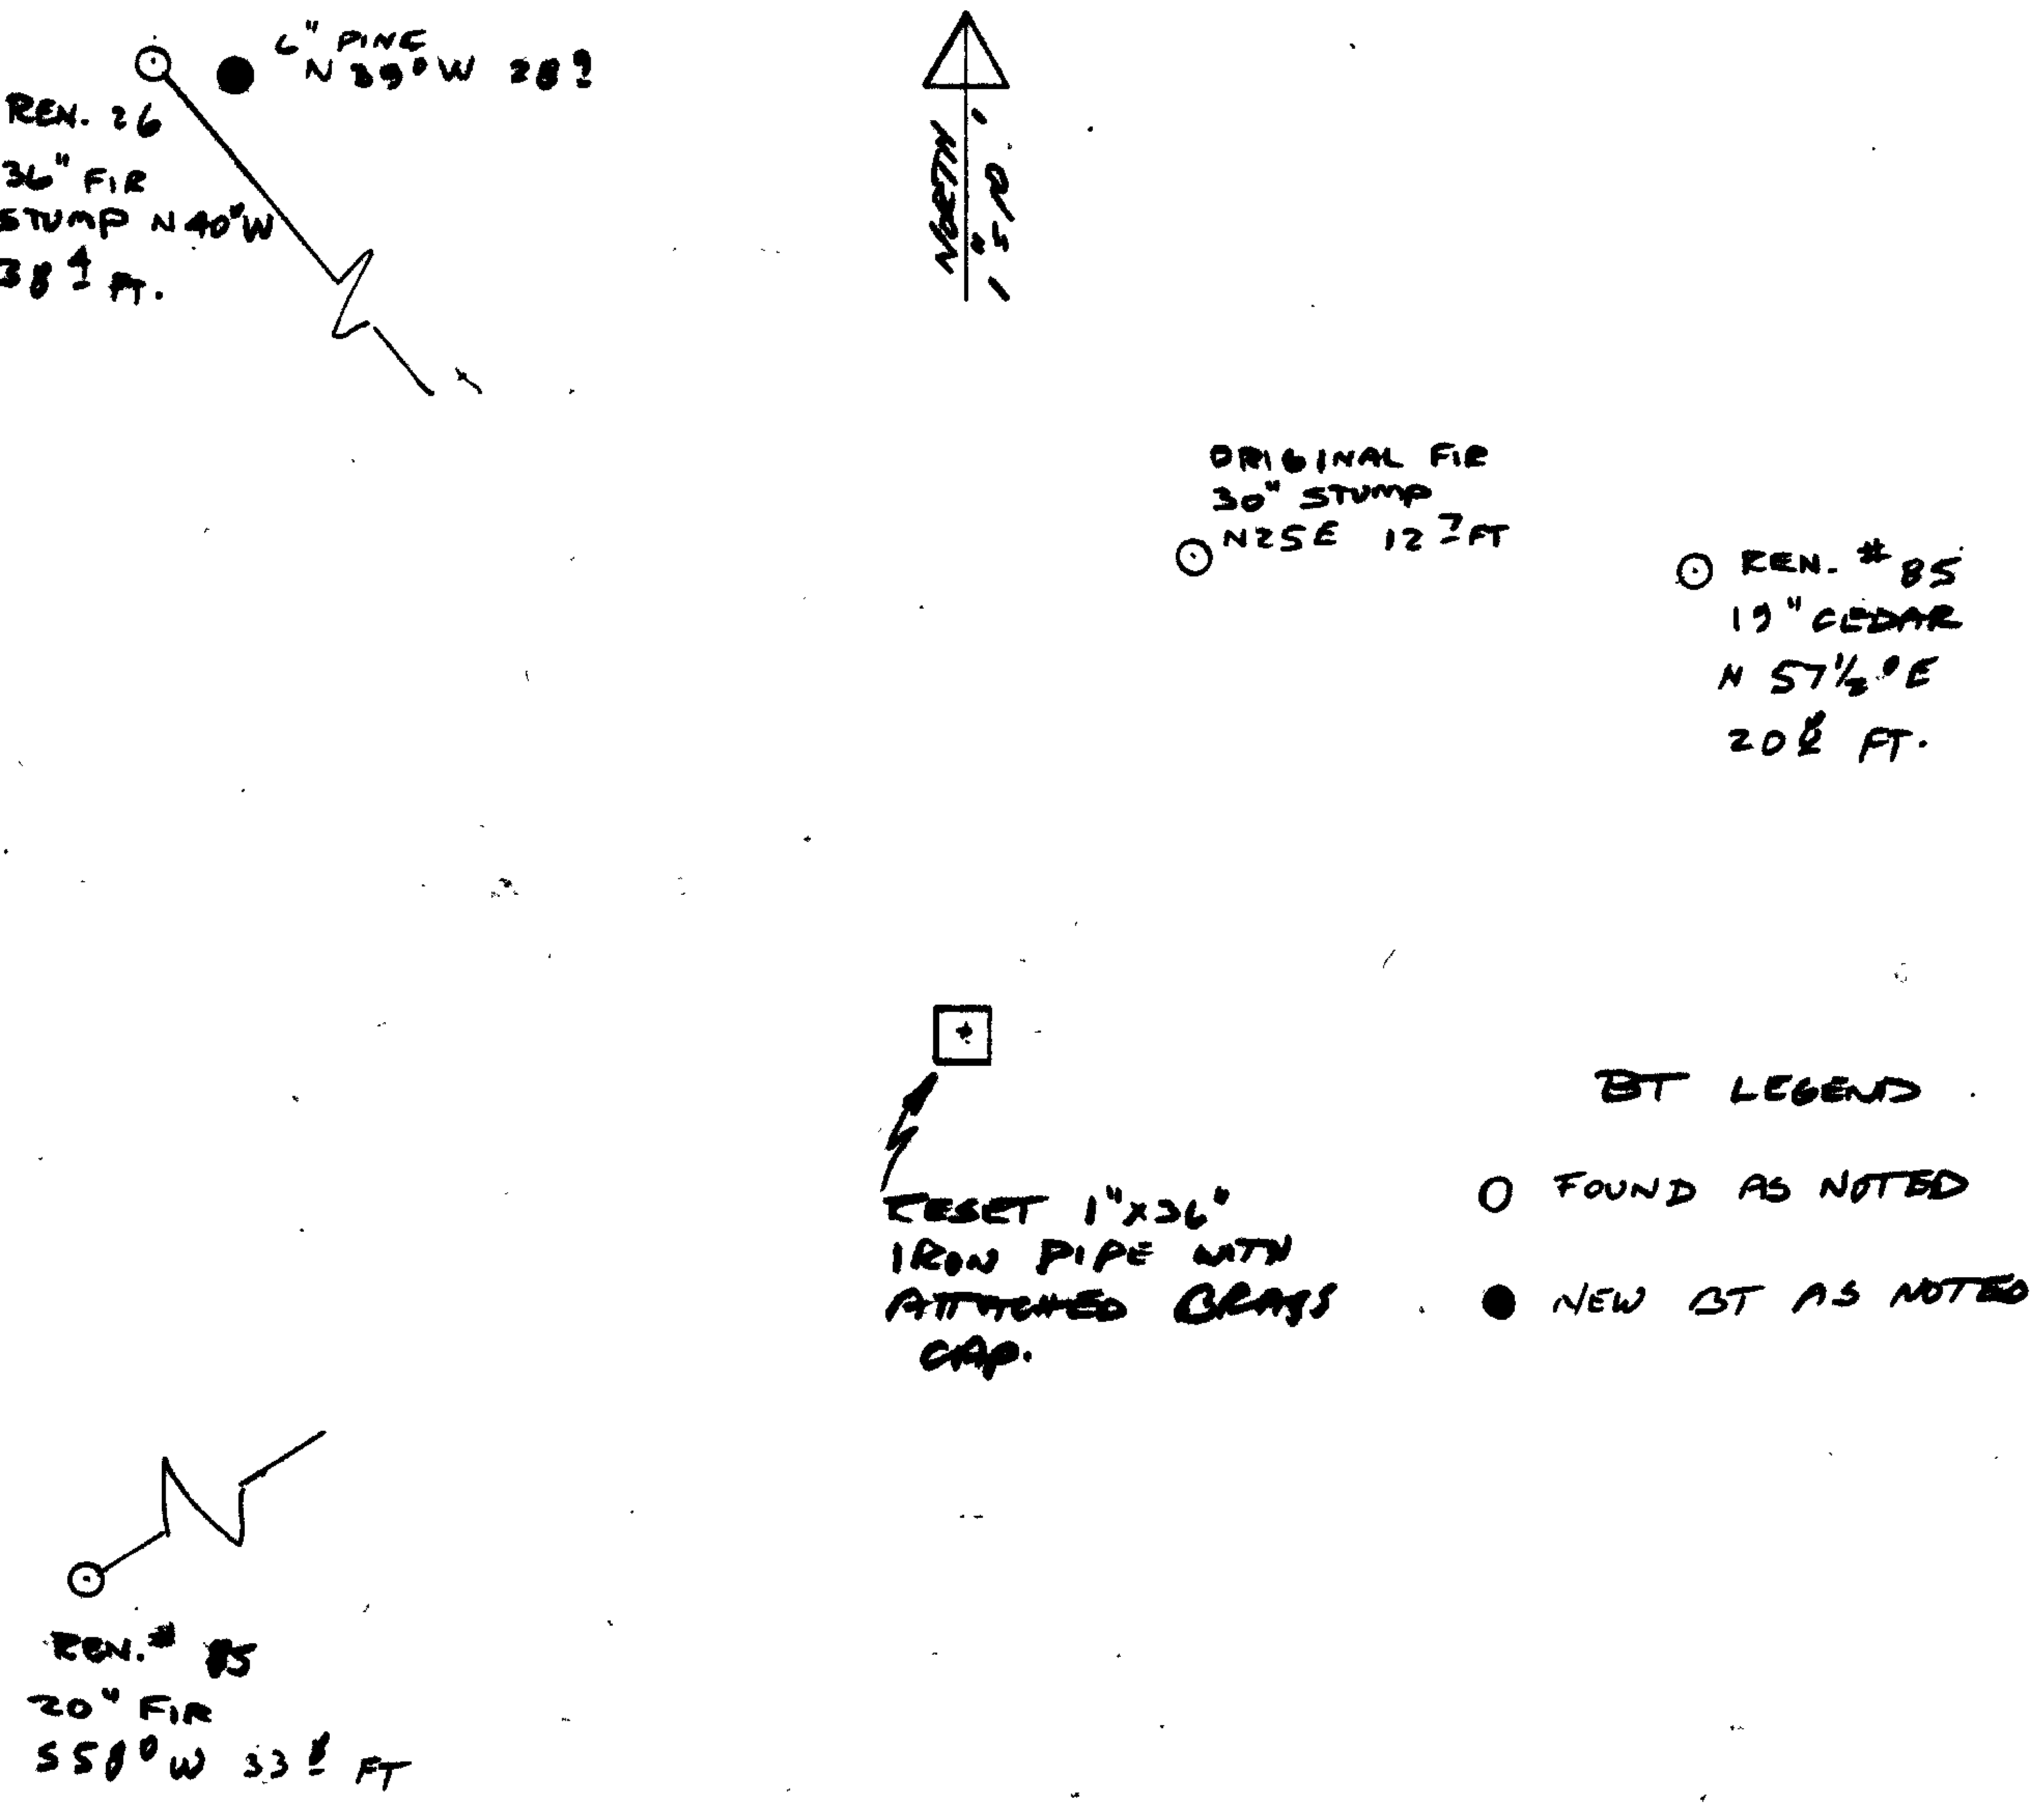 6" PINE
N 39° W 28 9
REN. 26
36" FIR
STUMP N 40° W
38 4 FT.
NORTH
1" = 4'
ORIGINAL FIR
30" STUMP
N25E 12 7 FT
REN. # 85
19" CEDAR
N 57½° E
20 8 FT.
RESET 1"x36"
IRON PIPE WITH
ATTACHED BRASS
CAP.
BT LEGEND
FOUND AS NOTED
NEW BT AS NOTED
REN. # 85
20" FIR
S58° W 33 8 FT